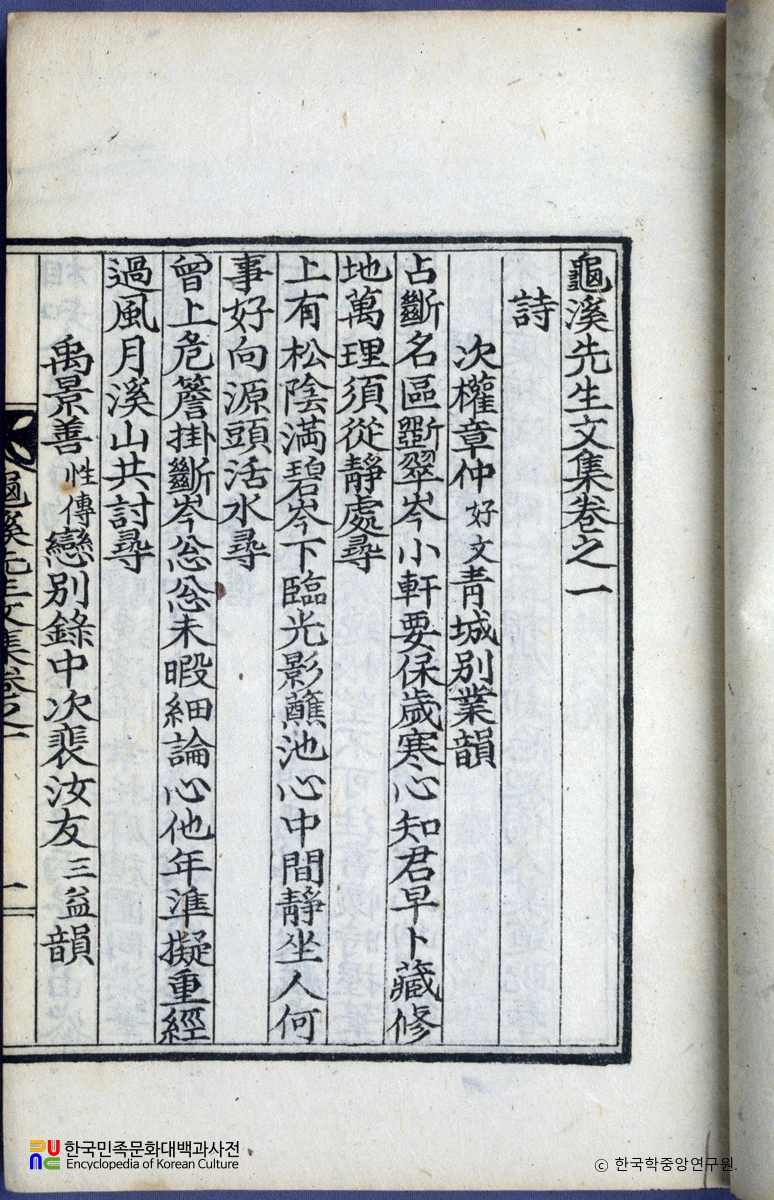 龜溪先生文集卷之一
詩
次權章仲好文青城別業韻
占斷名區斲翠岑小軒要保歲寒心知君早卜藏修
地萬理須從靜處尋
上有松陰滿碧岑下臨光影蘸池心中間靜坐人何
事好向源頭活水尋
曾上危簷掛斷岑忩忩未暇細論心他年準擬重經
過風月溪山共討尋
禹景善性傳戀別錄中次裴汝友三益韻
龜溪先生文集卷之一
一
한국민족문화대백과사전
Encyclopedia of Korean Culture
© 한국학중앙연구원.